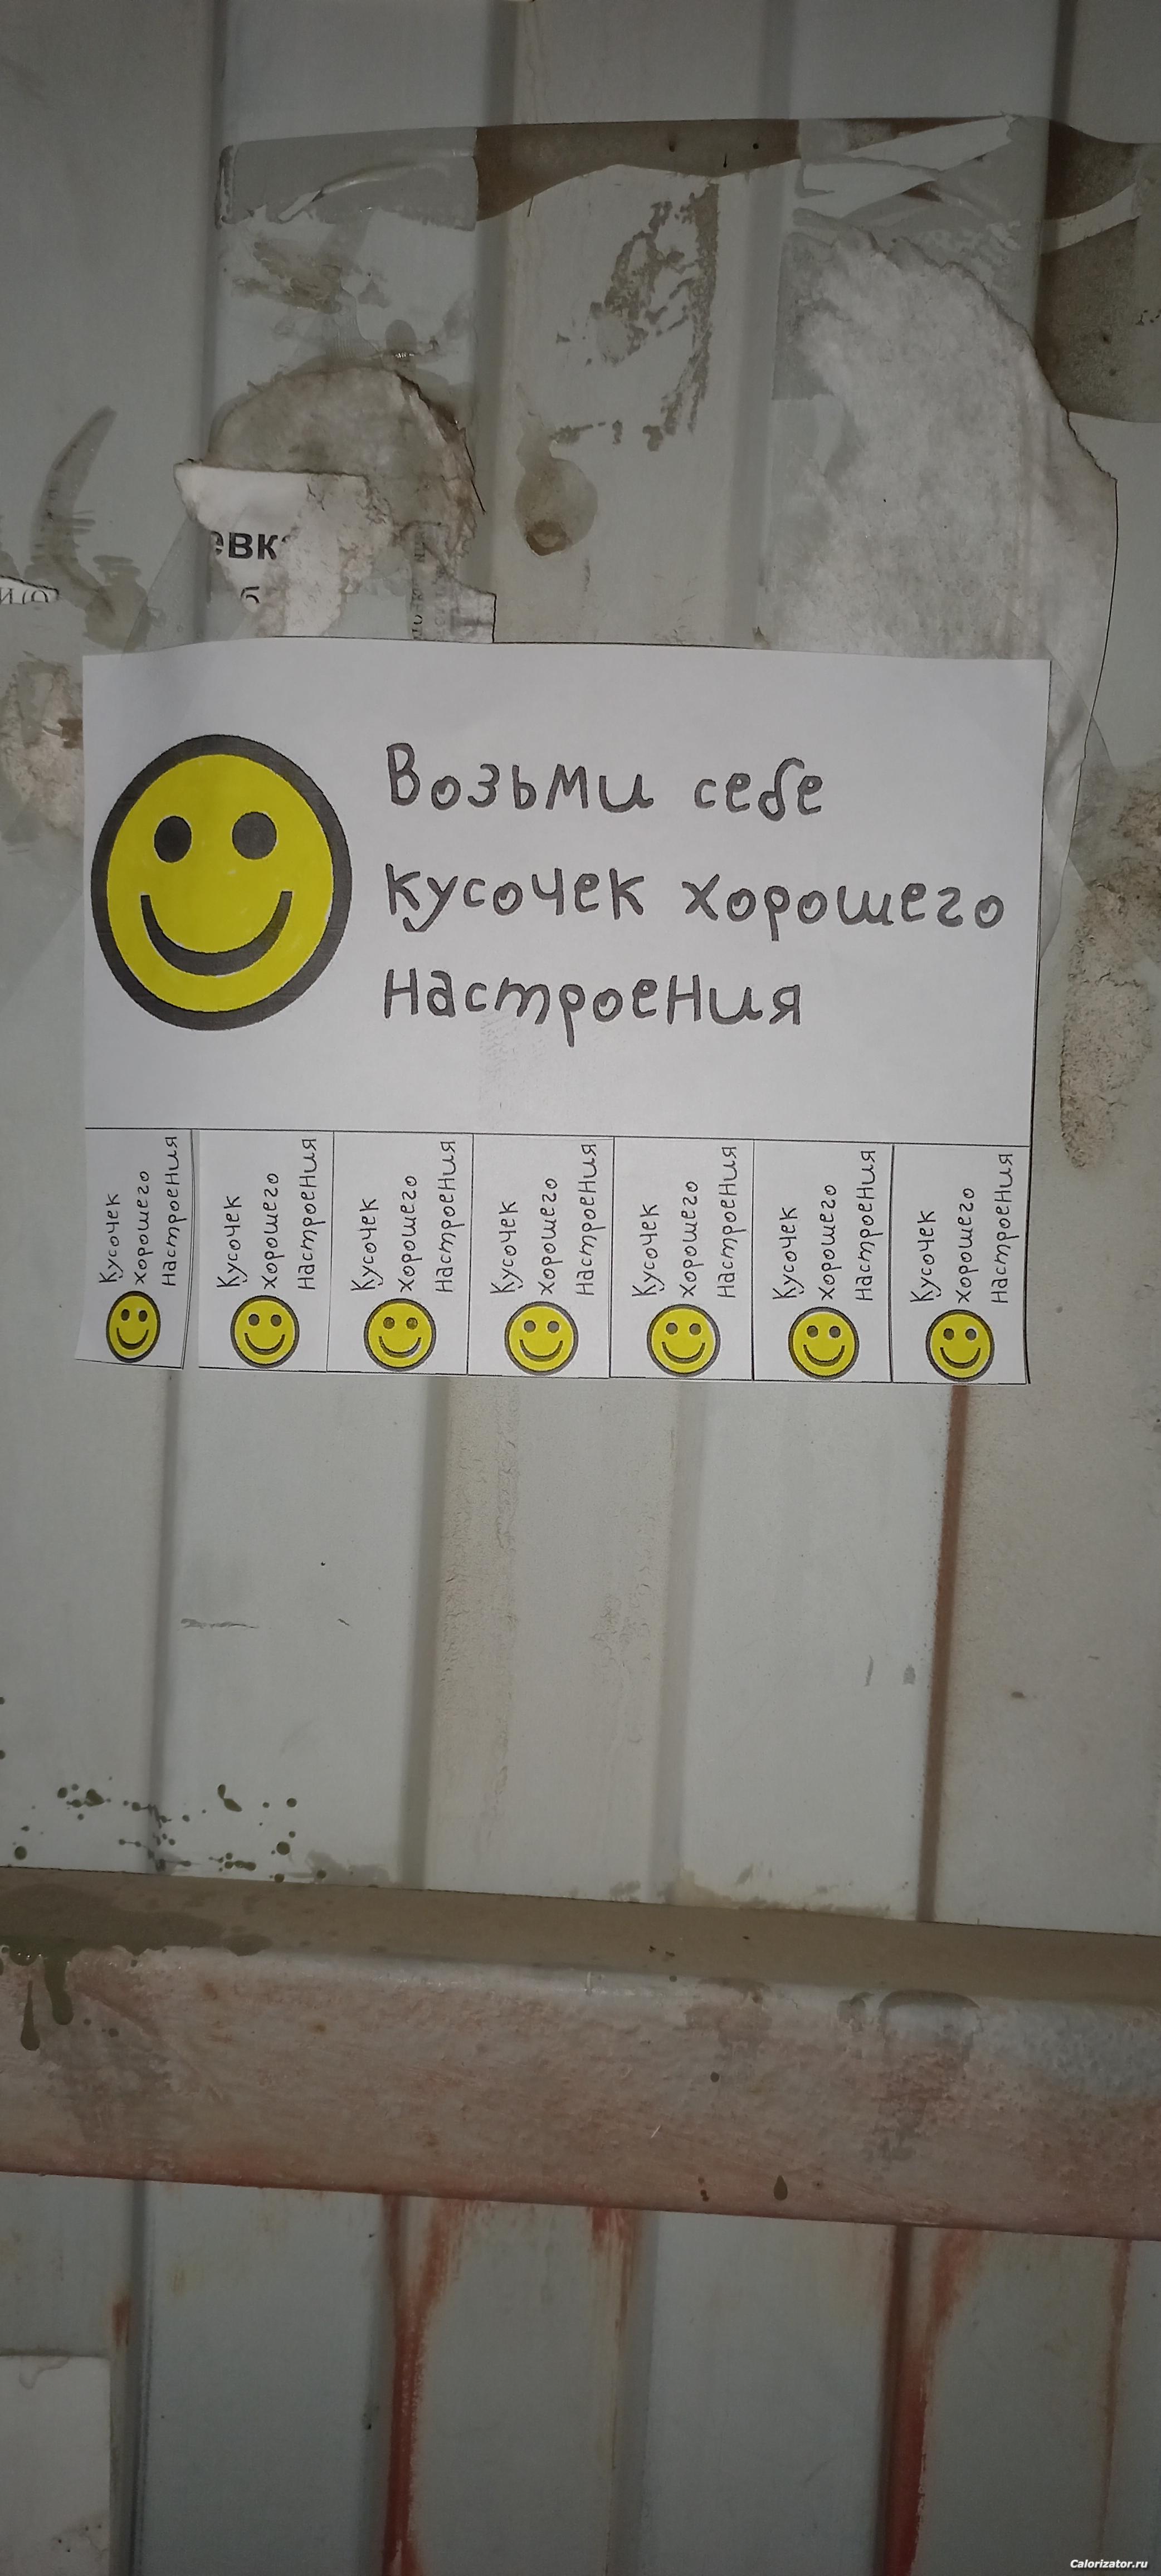 Возьми себе
кусочек хорошего
настроения
Кусочек
хорошего
настроения
Кусочек
хорошего
настроения
Кусочек
хорошего
настроения
Кусочек
хорошего
настроения
Кусочек
хорошего
настроения
Кусочек
хорошего
настроения
Кусочек
хорошего
настроения
Calorizator.ru